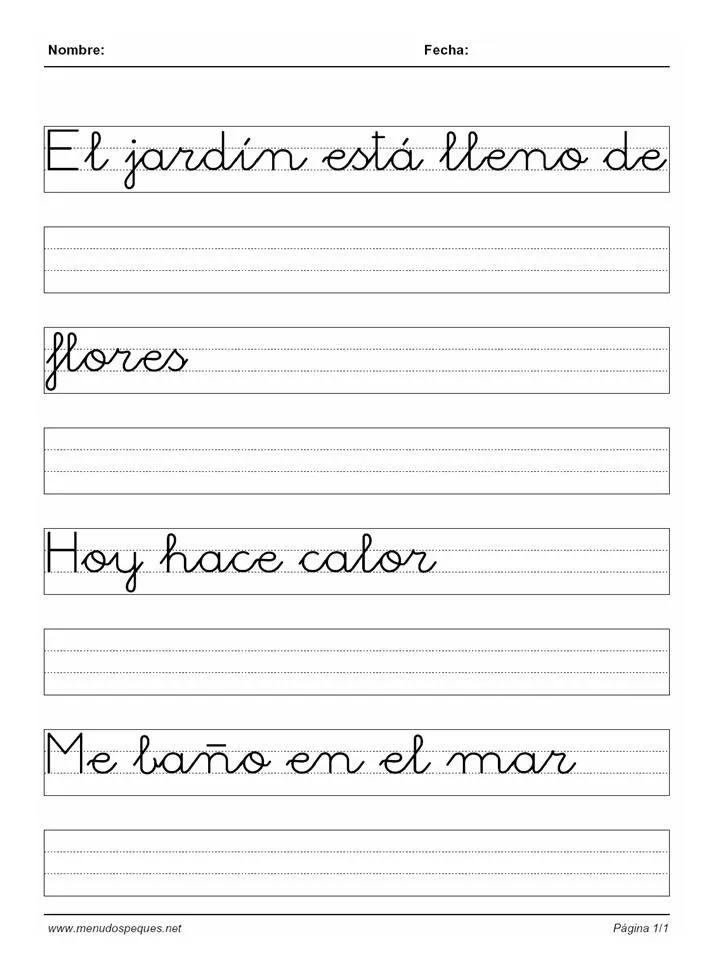 Nombre: Fecha:
El jardín está lleno de
flores
Hoy hace calor
Me baño en el mar
www.menudospeques.net Página 1/1